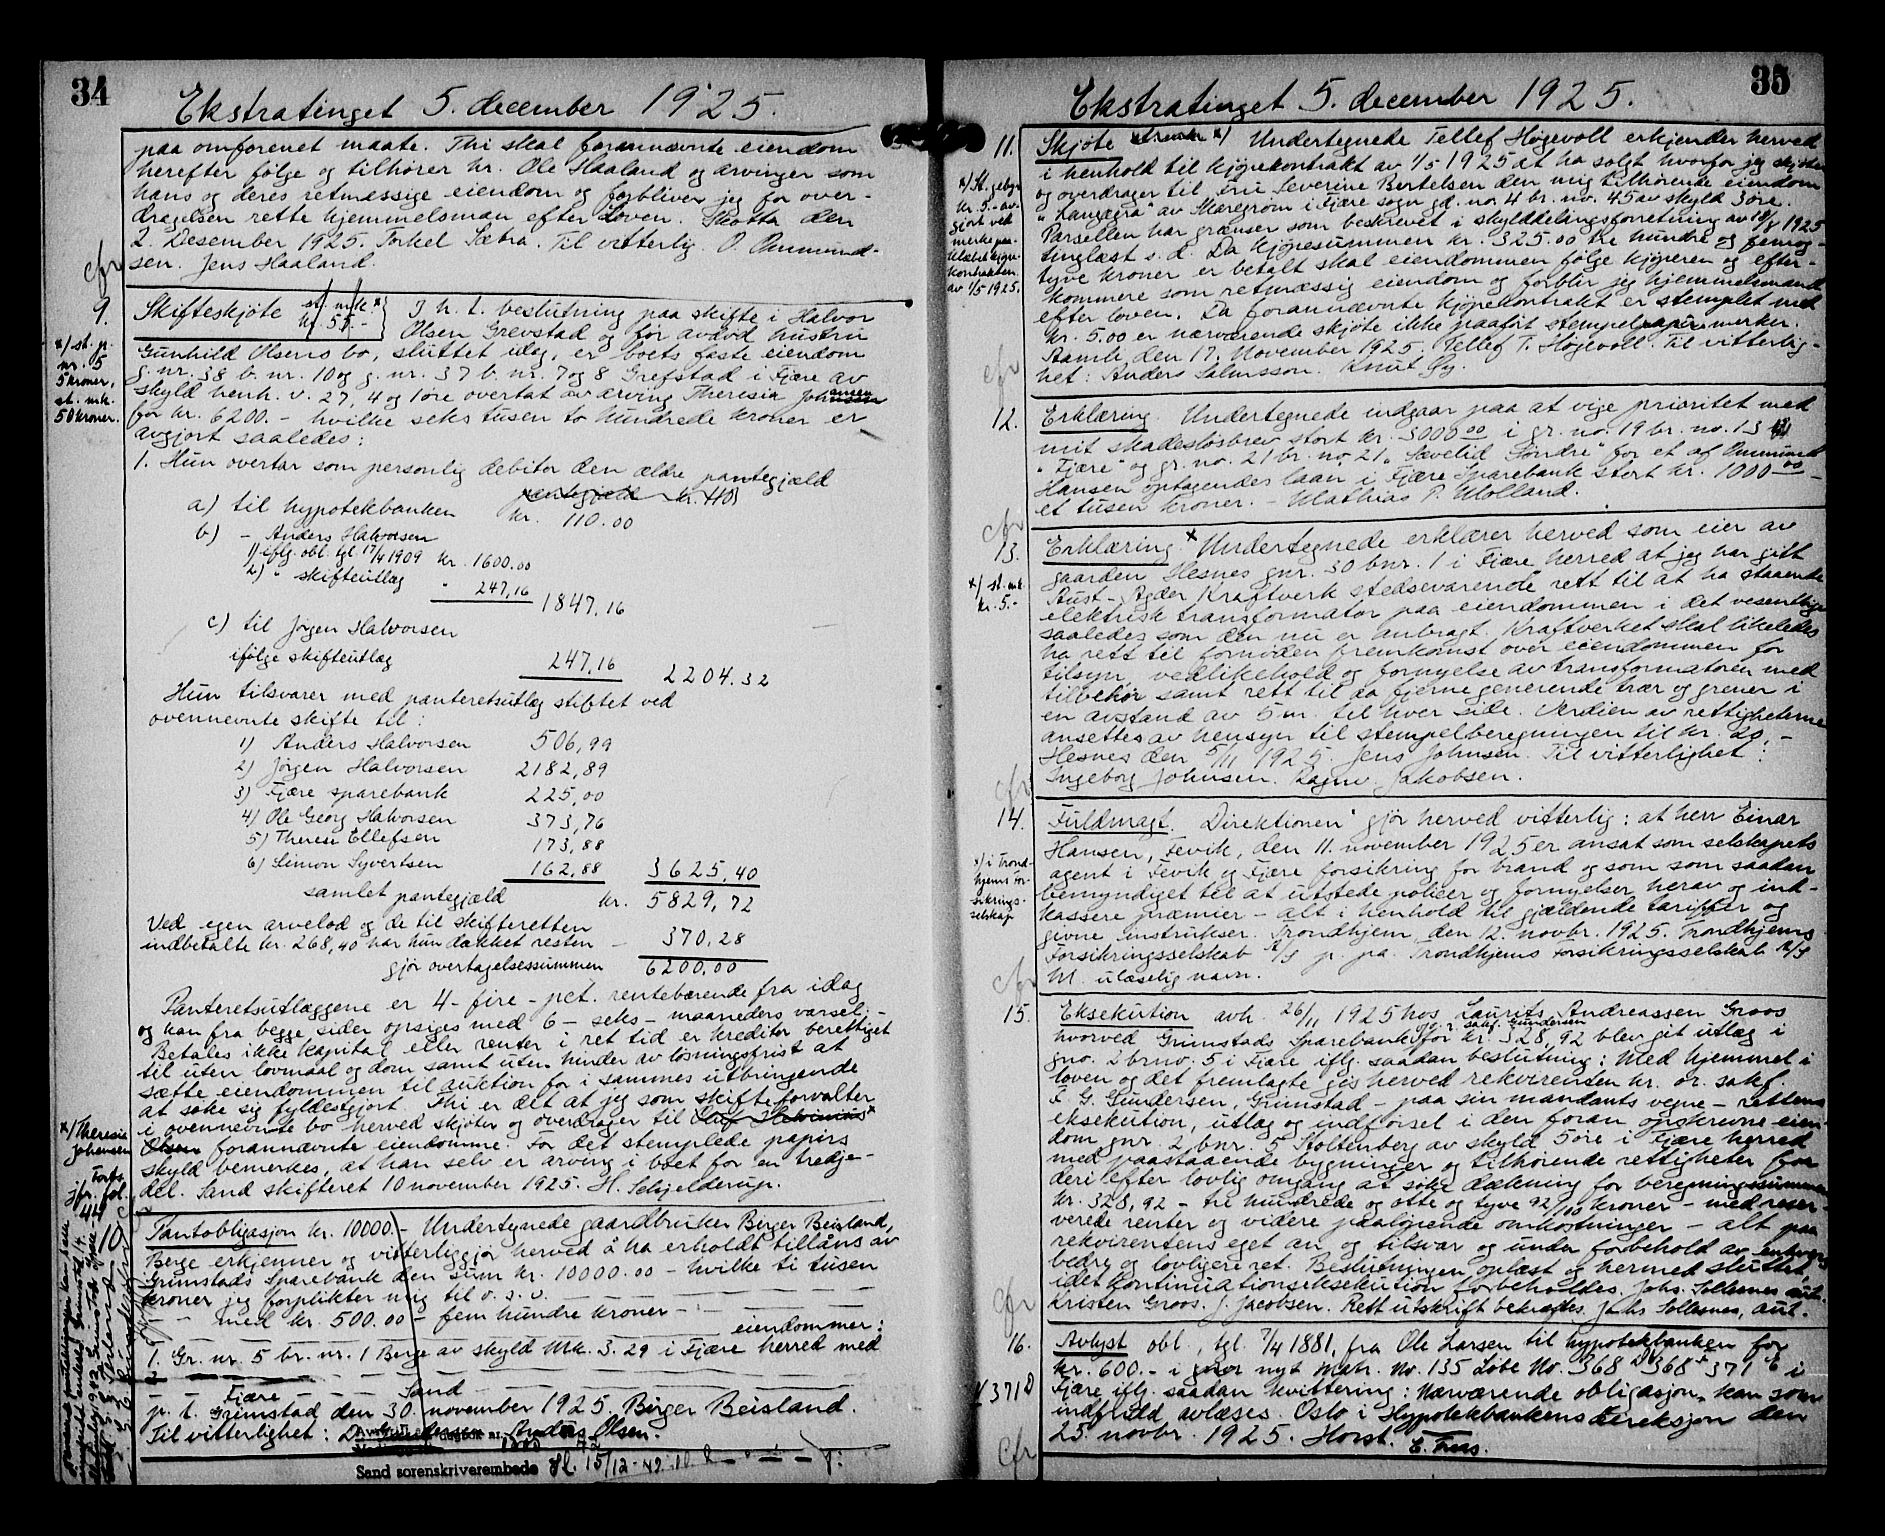 34
Ekstratinget 5. december 1925.
paa omforenet maate. Thi skal forannævnte eiendom
herefter følge og tilhører hr. Ole Haaland og arvinger som
hans og deres retmæssige eiendom og forbliver jeg for over-
dragelsen rette hjemmelsman efter Loven.
2. Desember 1925. Torkel Sætra. Til vitterlig. O. Ommund-
sen. Jens Haaland.
cfr
9.
Skifteskjøte st. mk. x)
kr. 55.-
x) st. p.
nr. 5
5 kroner,
st. mk.
50 kroner.
I h. t. beslutning paa skifte i Halvor
Olsen Grevstad og før avdød hustru
Gunhild Olsens bo, sluttet idag, er boets faste eiendom
g. nr. 38 b. nr. 10 og g. nr. 37 b. nr. 7 og 8 Grefstad i Fjære av
skyld henh. v. 27, 4 og 1 øre overtat av arving Theresia Johansen
for kr. 6200.- hvilke seks tusen to hundrede kroner er
avgjort saaledes:
1. Hun overtar som personlig debitor den ældre pantegjæld
a) til hypotekbanken kr. 110.00
b) - Anders Halvorsen
1) iflg. obl. tgl. 17/4 1909 kr. 1600.00
2) " skifteutlæg " 247,16
1847,16
c) til Jørgen Halvorsen
ifølge skifteutlæg 247,16 2204.32
Hun tilsvarer med panteretsutlæg stiftet ved
ovennevnte skifte til:
1) Anders Halvorsen 506,99
2) Jørgen Halvorsen 2182,89
3) Fjære sparebank 225,00
4) Ole Georg Halvorsen 373,76
5) Therese Ellefsen 173,88
6) Simon Syvertsen 162,88 3625,40
samlet pantegjæld kr. 5829,72
Ved egen arvelod og de til skifteretten
indbetalte kr. 268,40 har hun dækket resten - 370,28
gjør overtagelsessummen 6200,00
Panteretsutlæggene er 4 - fire - pct. rentebærende fra idag
og kan fra begge sider opsiges med 6 - seks - maaneders varsel.-
Betales ikke kapital eller renter i ret tid er kreditor berettiget
til uten lovmaal og dom samt uten hinder av løsningsfrist at
sætte eiendommen til auktion for i sammes utbringende
at søke sig fyldestgjort. Thi er det at jeg som skifteforvalter
i ovennevnte bo herved skjøter og overdrager til x
x) Theresia
Johansen
Olsen forannævnte eiendomme. For det stemplede papirs
skyld bemerkes, at han selv er arving i boet for en tredje-
del. Sand skifteret 10 november 1925. H. Schjelderup.
10.
Pantobligasjon kr. 10000.- Undertegnede gaardbruker Birger Beisland,
Berge erkjenner og vitterliggjør herved å ha erholdt tillåns av
Grimstads Sparebank den sum kr. 10000.00 - hvilke ti tusen
kroner jeg forplikter mig til o. s. v.
- - med kr. 500.00 - fem hundre kroner -
eiendommer:
1. Gr. nr. 5 br. nr. 1 Berge av skyld Mk. 3.29 i Fjære herred med
Fjære Sand
p. t. Grimstad den 30 november 1925. Birger Beisland.
Til vitterlighet: Anders Olsen.
Sand sorenskriverembede
35
Ekstratinget 5. december 1925.
11.
Skjøte x) Undertegnede Tellef Høgevoll erkjender herved
i henhold til kjøpekontrakt av 1/5 1925 at ha solgt hvorfor jeg skjøter
og overdrager til fru Severine Bertelsen den mig tilhørende eiendom
x) St. gebyr
kr. 5.- av-
gjort ved
merke paa-
klæbet kjøpe-
kontrakten
av 1/5 1925.
av Skaregrøm i Fjære sogn gd. no. 4 br. no. 45 av skyld 3 øre.
Parsellen har grænser som beskrevet i skylddelingsforretning av 1925
tinglæst s. d. Da kjøpesummen kr. 325.00 tre hundre og femog-
tyve kroner er betalt skal eiendommen følge kjøperen og efter-
kommere som retmæssig eiendom og forblir jeg hjemmelsmand
efter loven. Da forannævnte kjøpekontrakt er stemplet med
kr. 5.00 er nærværende skjøte ikke paaført stempelmerker.
den 17. November 1925. Tellef T. Høgevoll. Til vitterlig-
het: Anders Salmsson. Knut
cfr
12.
Erklæring. Undertegnede indgaar paa at vige prioritet med
mit skadesløsbrev stort kr. 3000 00 i gr. no. 19 br. no. 13
"Fjære" og gr. no. 21 br. no 21 "Sævelid Søndre" for et af Ommund
Hansen optagendes laan i Fjære Sparebank stort kr. 1000 00 -
et tusen kroner. - Mathias P. Molland.
cfr
13.
x) st. mk.
kr. 5.-
Erklæring x Undertegnede erklærer herved som eier av
gaarden Hesnes gnr. 30 bnr. 1 i Fjære herred at jeg har gitt
Aust-Agder Kraftverk stedsevarende rett til at ha staaende
elektrisk transformator paa eiendommen i det vesentlige
saaledes som den nu er anbragt. Kraftverket skal likeledes
ha rett til fornøden fremkomst over eiendommen for
tilsyn, vedlikehold og fornyelse av transformatoren med
tilbehør samt rett til da fjerne generende trær og grener i
en avstand av 5 m. til hver side. Verdien av rettigheterne
ansettes av hensyn til stempelberegningen til kr. 20,-
Hesnes den 5/11 1925. Jens Johnsen. Til vitterlighet:
Ingeborg Johnsen. Ragnv. Jakobsen.
cfr
14.
x) i Trond-
hjems For-
sikrings-
selskap
Fuldmagt. Direktionen x gjør herved vitterlig: at herr Einar
Hansen, Fevik, den 11. november 1925 er ansat som selskapets
agent i Fevik og Fjære forsikring for brand og som som saadan
bemyndiget til at utstede policer og fornyelser herav og ind-
kassere præmier - alt i henhold til gjældende tariffer og
givne instrukser. Trondhjem, den 12. novbr. 1925. Trondhjems
Forsikringsselskab A/S p. pa. Trondhjems Forsikringsselskab A/S
M. ulæselig navn.
cfr
15.
Eksekution avh. 26/11 1925 hos Laurits Andreassen Groos
hvorved Grimstads Sparebank for kr. 328,92 blev git utlæg i
gno. 2 brno. 5 i Fjære iflg. saadan beslutning: Med hjemmel i
loven og det fremlagte gis herved rekvirenten hr. or. sakf.
F. G. Gundersen, Grimstad - paa sin mandants vegne - rettens
eksekution, utlæg og indførsel i den foran opskrevne eien-
dom gnr. 2 bnr. 5 Stoltenberg av skyld 5 øre i Fjære herred
med paastaaende bygninger og tilhørende rettigheter for
deri efter lovlig omgang at søke dækning for beregningssummen
kr. 328,92 - tre hundrede og otte og tyve 92/100 kroner - med reser-
verede renter og videre paaløpende omkostninger - alt paa
rekvirentens eget an og tilsvar og under forbehold av enhver
bedre og lovligere ret. Beslutningen oplæst og hermed sluttet,
idet kontinuationseksekution forbeholdes. Johs. Sollesnes aut.
Kristen Groos. J. Jacobsen. Rett utskrift bekræftes. Johs Sollesnes, aut.
cfr
16.
Avlyst obl., tgl. 7/4 1881, fra Ole Larsen til hypotekbanken for
kr. 600.- i nyt matr. no. 135 Løbe No. 368 b 368 x 371 c i
x 371 d
Fjære iflg. saadan kvittering: Nærværende obligasjon kan som
indfriid avlæses. Oslo i Hypotekbankens direksjon den
25. novbr. 1925. Horst.
cfr